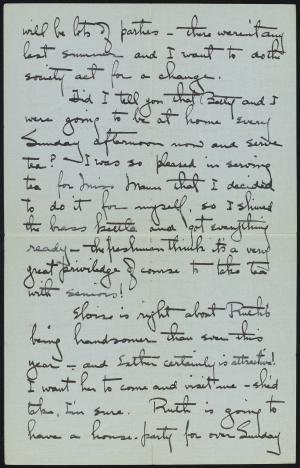 will be lots of parties – there weren't any
last summer and I want to do the
society act for a change.
Did I tell you that Betty and I
were going to be at home every
Sunday afternoon now and serve
tea? I was so pleased in serving
tea for Miss Mann that I decided
to do it for myself, so I shined
the brass kettle and got everything
ready – the freshmen think its a very
great priviledge of course to take tea
with seniors!
Eloise is right about Ruth's
being handsomer than ever this
year – and Esther certainly is attractive!
I want her to come and visit me – she'd
take, I'm sure. Ruth is going to
have a house-party for over Sunday